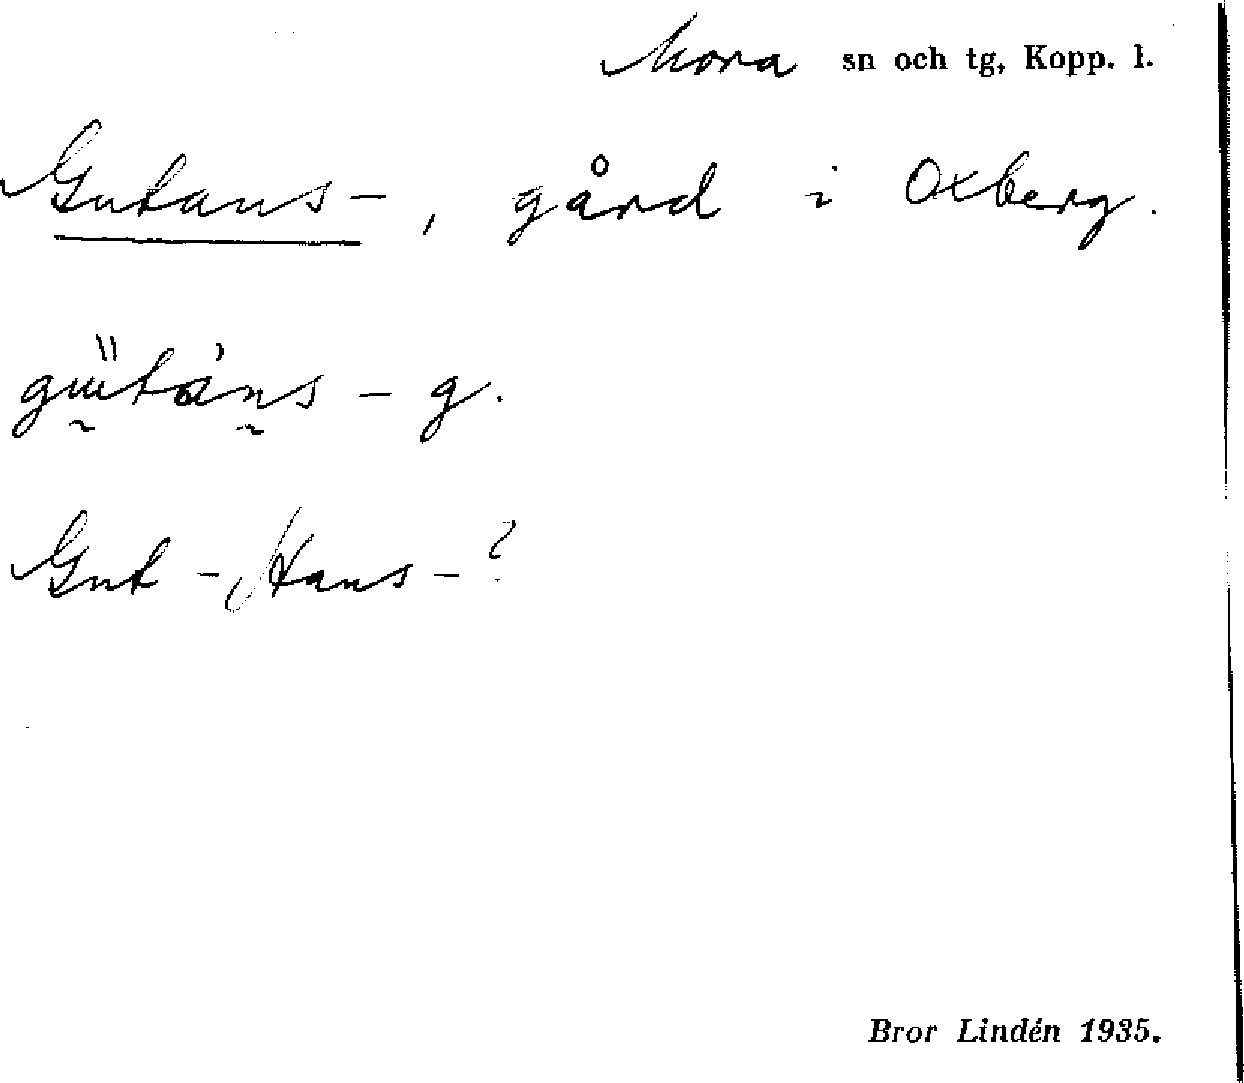 Mora sn och tg, Kopp. l.
Gutans-, gård i Oxberg.
Gut - Hans - ?
Bror Lindén 1935.